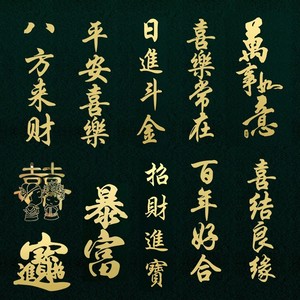 八方来财
平安喜樂
日進斗金
喜樂常在
萬事如意
囍
招財進寶
暴富
招財進寶
百年好合
喜结良缘